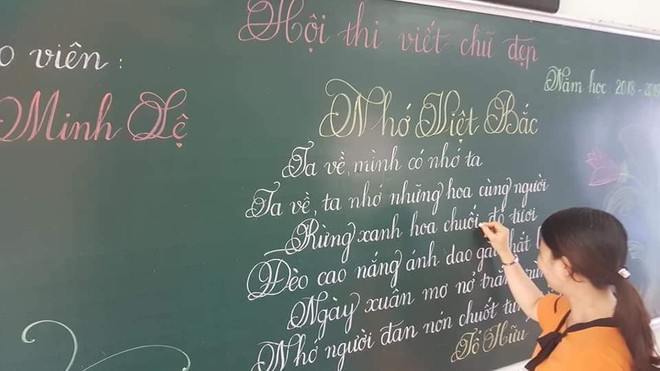 Hội thi viết chữ đẹp
o viên :
Minh Lệ
Năm học 2018 - 2019
Nhớ Việt Bắc
Ta về, mình có nhớ ta
Ta về, ta nhớ những hoa cùng người
Rừng xanh hoa chuối đỏ tươi
Đèo cao nắng ánh dao gài thắt
Ngày xuân mơ nở trắng
Nhớ người đan nón chuốt từng
Tố Hữu